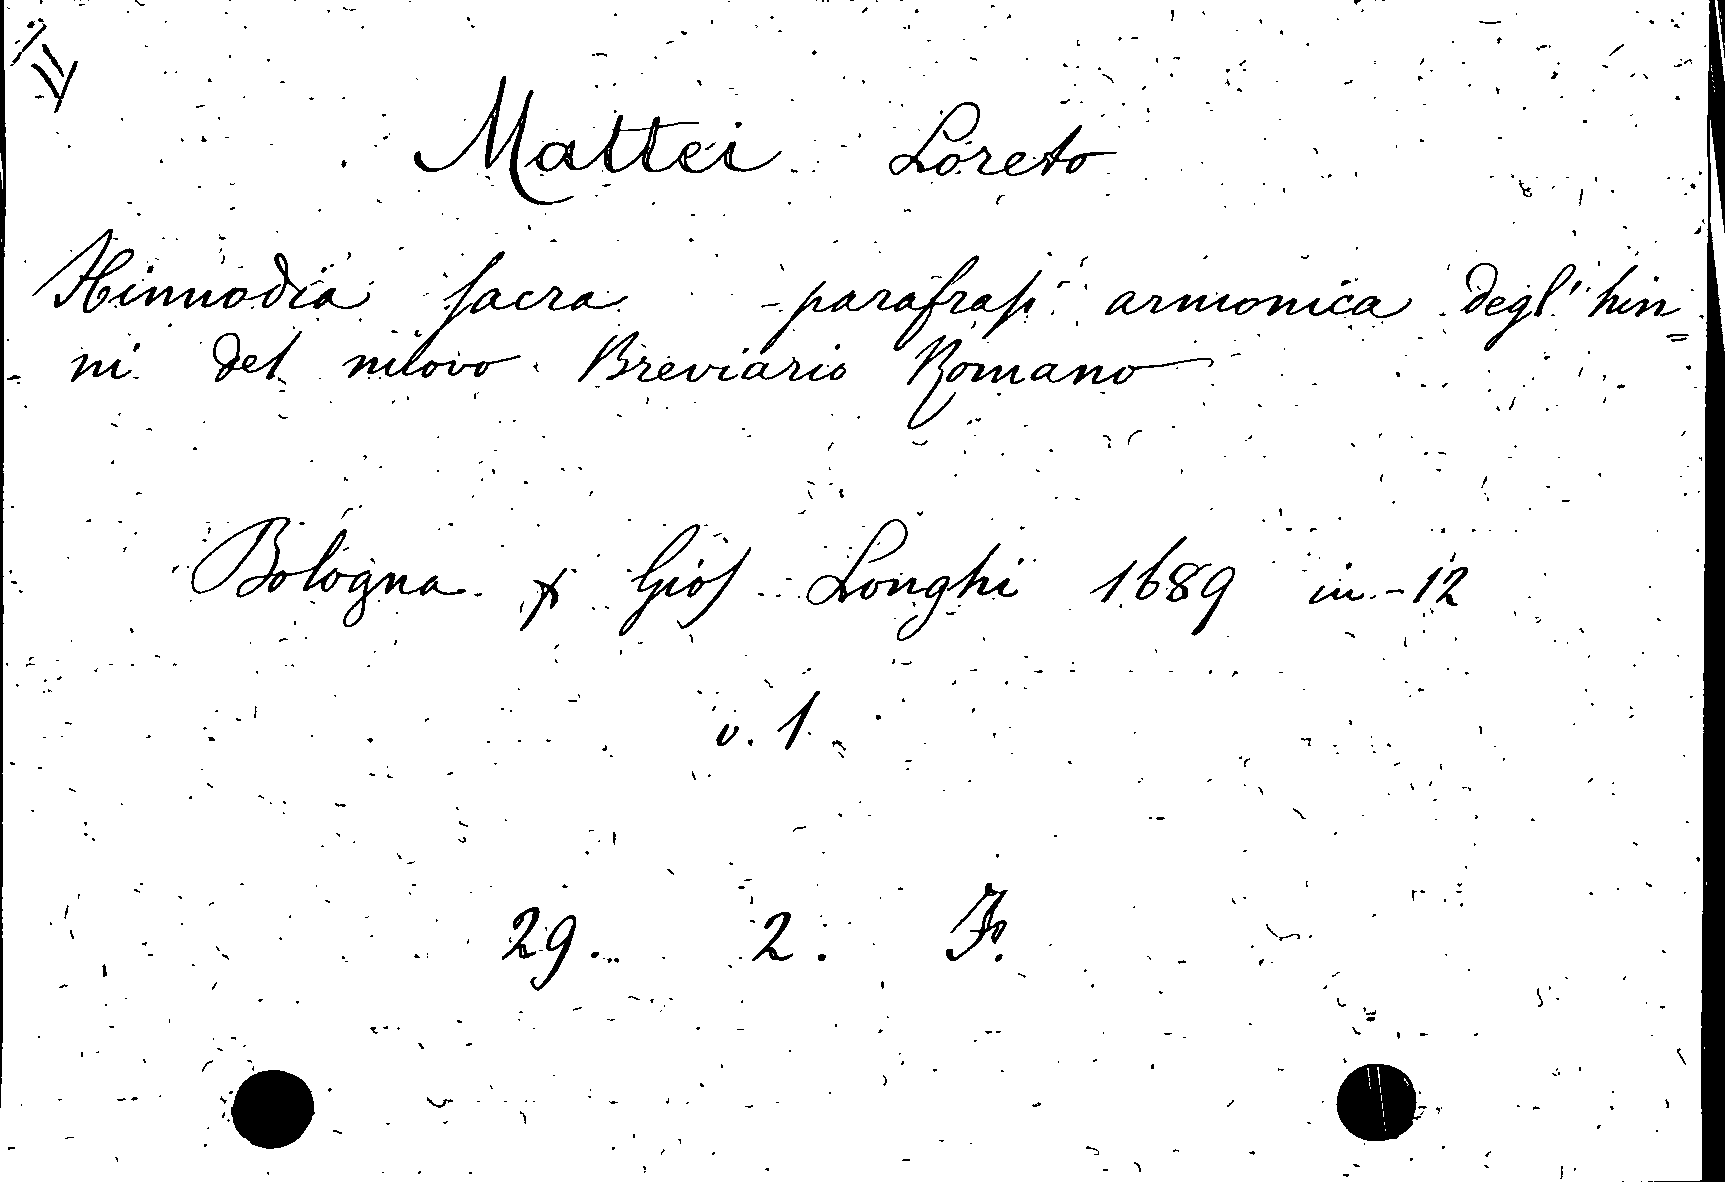 Mattei Loreto
Hinnodia sacra - parafrasi armonica degl' hin=
ni del nuovo Breviario Romano
Bologna p Gios Longhi 1689 in-12
v. 1.
29. 2. F.